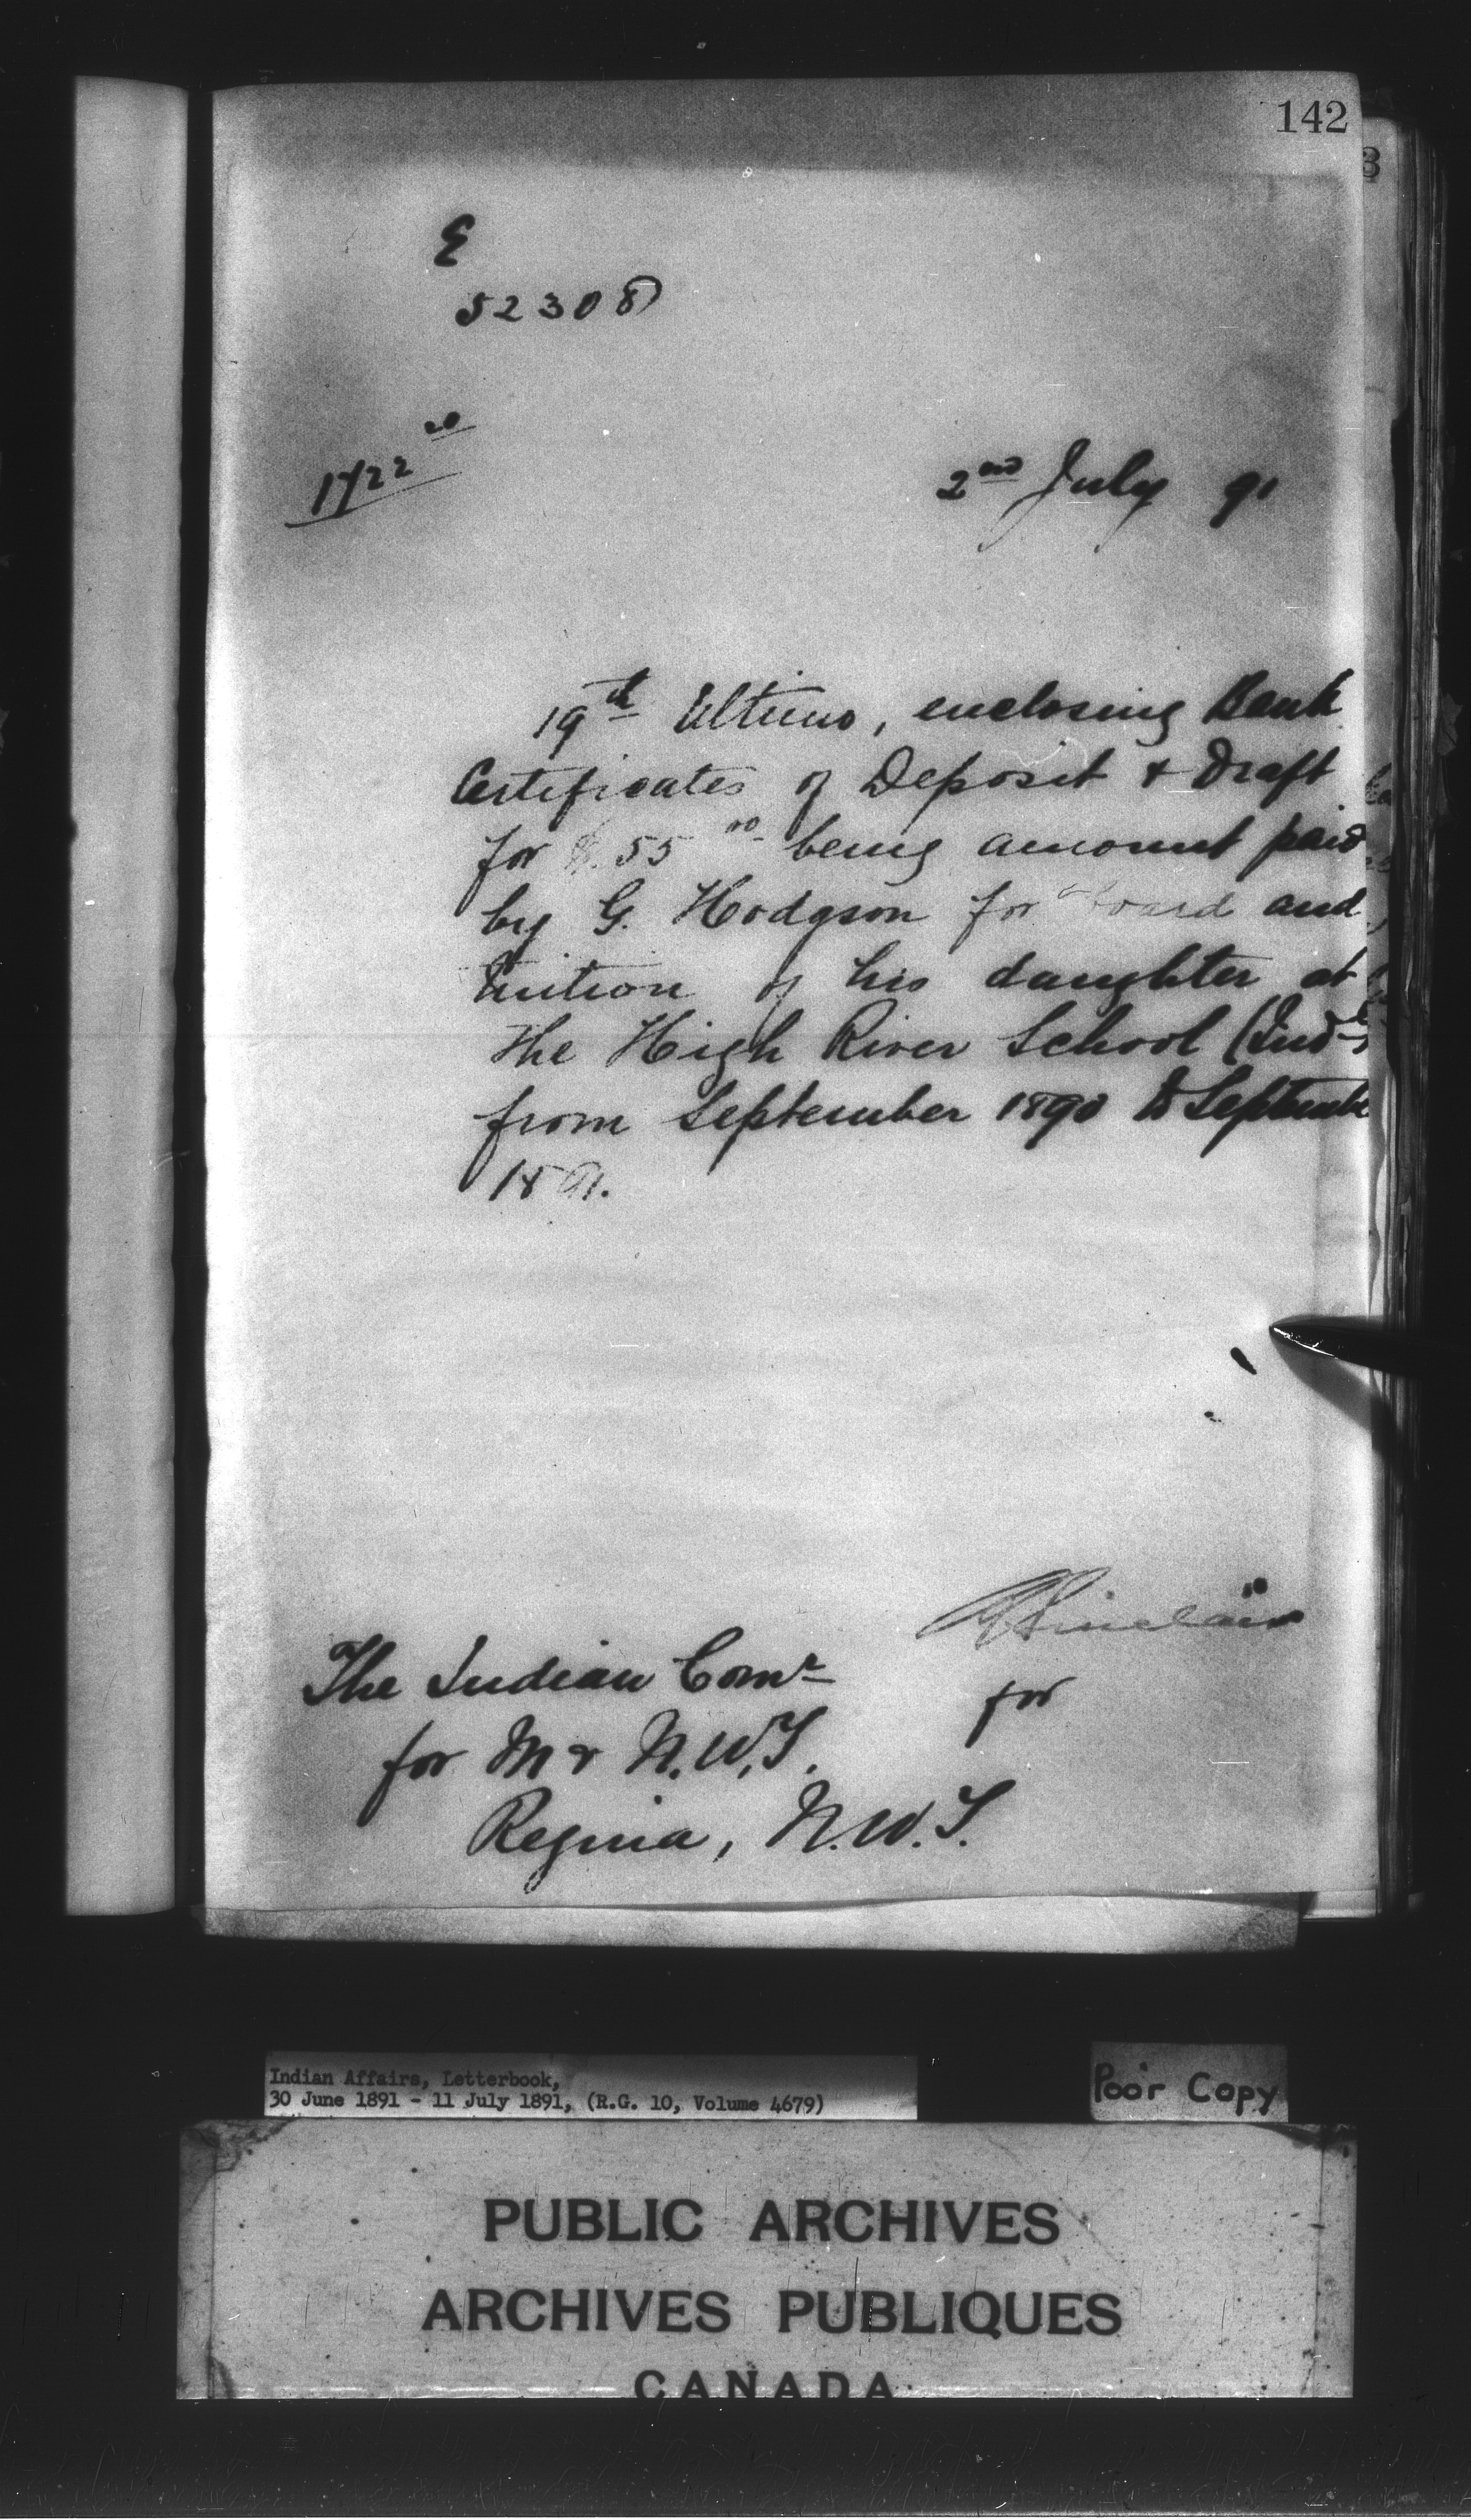 142
3
E
52308
1722 20
2nd July 91
19th Ultimo, enclosing Bank
Certificates of Deposit & Draft
for $55 00 being amount paid
by G. Hodgson for board and
tuition of his daughter at
the High River School (Indl
from September 1890 to Septembe
1891.
Sinclair
The Indian Comr
for
for M & N.W.T.
Regina, N.W.T.
Indian Affairs, Letterbook,
30 June 1891 - 11 July 1891, (R.G. 10, Volume 4679)
Poor Copy
PUBLIC ARCHIVES
ARCHIVES PUBLIQUES
CANADA